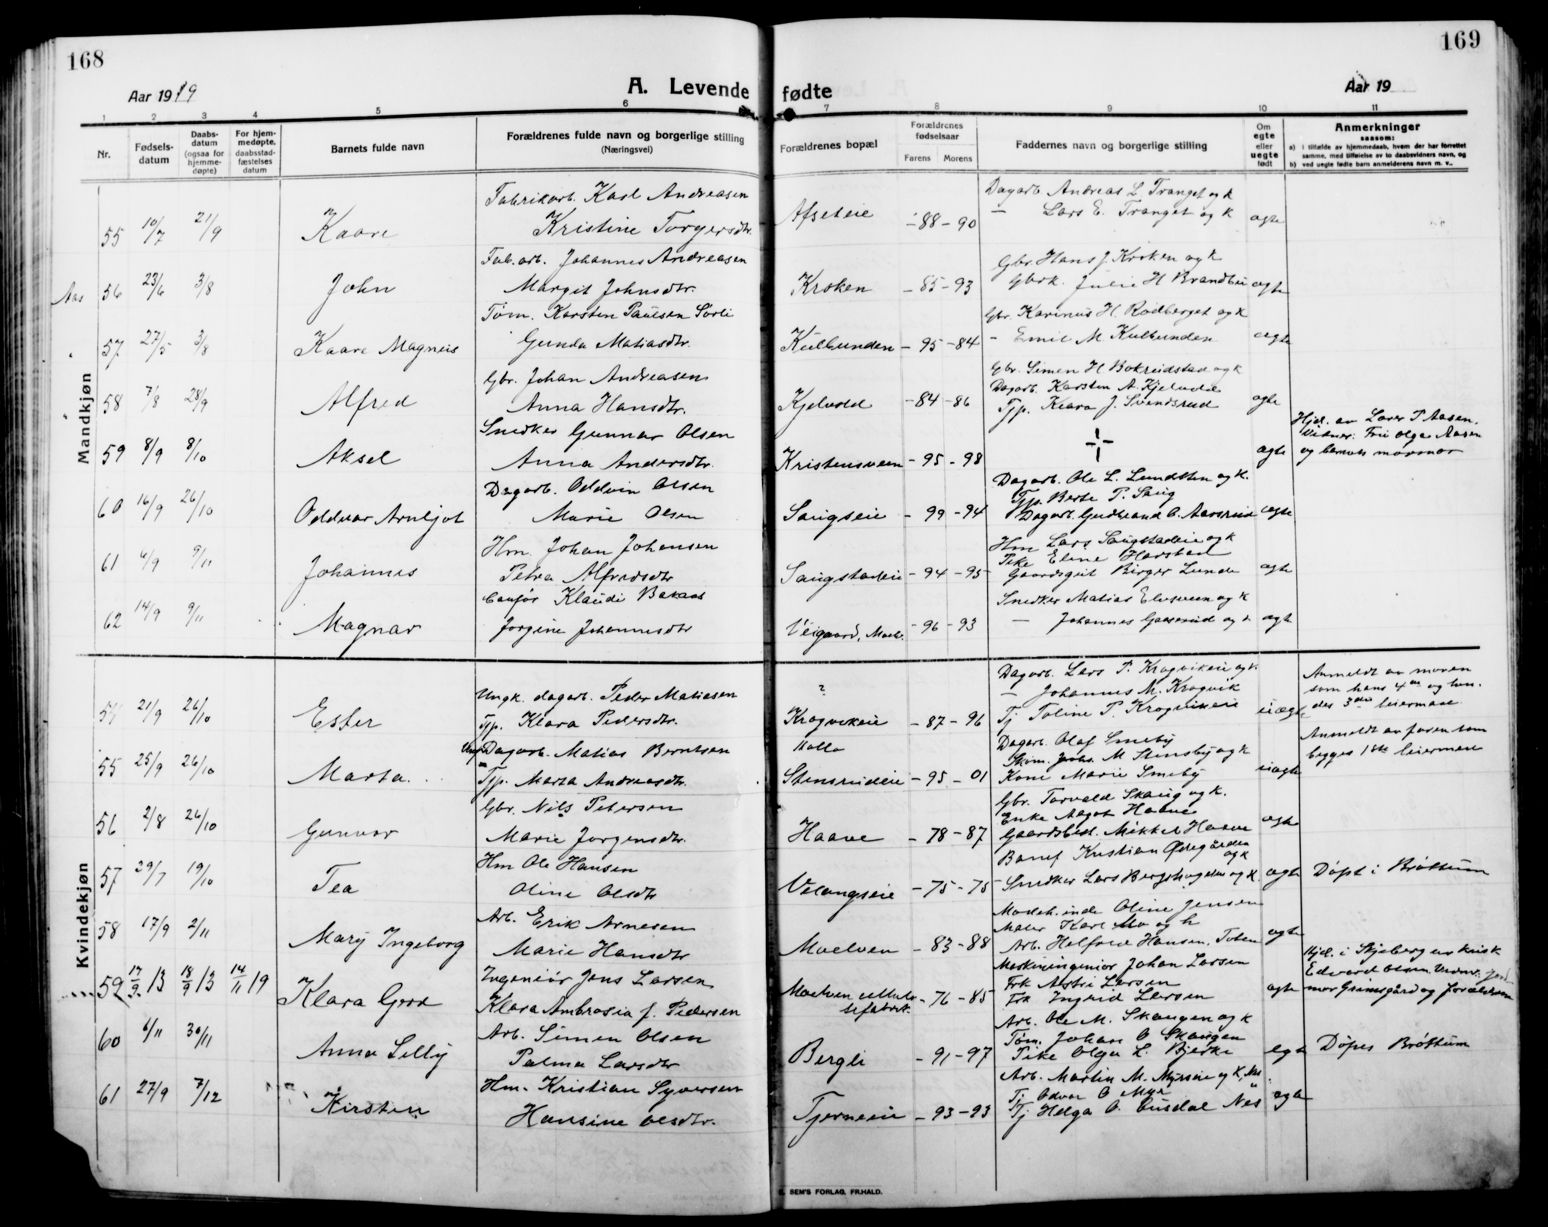 168
Aar 1919
A. Levende
fødte
Aar 19
169
1 2 3 4 5 6 7 8 9 10 11
Nr.
Fødsels-
datum
Daabs-
datum
(ogsaa for
hjemme-
døpte)
For hjem-
medøpte,
daabsstad-
fæstelses
datum
Barnets fulde navn
Forældrenes fulde navn og borgerlige stilling
(Næringsvei)
Forældrenes bopæl
Forældrenes
fødselsaar
Farens Morens
Faddernes navn og borgerlige stilling
Om
egte
eller
uegte
født
Anmerkninger
saasom:
a) i tilfælde av hjemmedaab, hvem der har forrettet
samme, med tilføielse av to daabsvidners navn, og
b) ved uegte fødte barn anmelderens navn m. v..
Mandkjøn
Fabrikarb. Karl Andreasen
Dagarb. Andreas L. Tranget og k
55 10/7 21/9 Kaare Kristine Torgersdtr. Afseteie -88 -90 — Lars E. Tranget og k egte
Fab.arb. Johannes Andreasen
Gbr. Hans J. Kroken og k
Aas 56 23/6 3/8 John Margit Johnsdtr. Kroken -85 -93 Gbrk. Julie H Brandlie egte
Tøm. Karsten Paulsen Sørli
Gbr. Karinus H Rodberget og k
57 27/5 3/8 Kaare Magnus Gunda Matiasdtr. Kulbunden -95 -84 - Emil M Kulbunden egte
Gbr. Johan Andreasen
Gbr. Simen H Bakreidstad og k
Dagarb. Karsten A. Kjelvold
58 7/8 28/9 Alfred Anna Hansdtr. Kjelvold -84 -86 Tjp. Klara J. Svendsrud egte
Snedker Gunnar Olsen
59 8/9 8/10 Aksel Anna Andersdtr. Kristensveen -95 -98 egte
Hjd. av Lærer P Aasen.
Vidner: Fru Olga Aasen
og barnets mormor
Dagarb. Oddvin Olsen
Dagarb. Ole L. Lundsten og k.
Tjp. Berte P. Saug
60 16/9 26/10 Oddvar Arnljot Marie Olsen Saugseie -99 -94 Dagarb. Gudbrand O. Aarsrud egte
Hm. Johan Johansen
Hm Lars Saugstadeie og k
Pike Eline Harstad
61 4/9 9/11 Johannes Petra Alfredsdtr Saugstadeie -94 -95 Gaardsgut Birger Lunde egte
Klaudi Bakaas
Snedker Matias Elvsveen og k
62 14/9 9/11 Magnar Jørgine Johannesdtr Veigaard, Moelv. -96 -93 — Johannes og k egt
Kvindekjøn
Ungk. dagarb. Peder Matiasen
?
Dagarb. Lars P. Krogvikeie og k
— Johannes M. Krogvik
54 21/9 26/10 Ester Tjp. Klara Pedersdtr. Krogvikeie -87 -96 Tj Toline P. Krogvikeie uegte
Anmeldt av moren
som hans 4de og hen-
des 3die leiermaal
Ungk. Dagarb. Matias Berntsen
Dagarb. Olaf Smeby
Skom. Johs. M Stensby og k
55 25/9 26/10 Marta Tjp. Marta Andreasdtr. Stensrudeie -95 -01 Kone Marie Smeby uegte
Anmeldt av faren som
begges 1ste leiermaal
Gbr. Nils Petersen
Gbr. Torvald Skaug og k.
Enke Aagot Haave
56 2/8 26/10 Gunvor Marie Jørgensdtr. Haave -78 -87 Gaardsbest. Mikkel Haave egte
Hm Ole Hansen
Banef Kristian Øvregarden og k
57 29/7 19/10 Tea Oline Olsdtr Volangseie -75 -75 Snedker Lars Bergshagden og k egte Døpt i Brøttum
Arb. Erik Arnesen
Modeh.inde Oline Jensen
Maler Karl Mo og k
58 17/9 2/11 Mary Ingeborg Marie Hansdtr Moelven -83 -88 Arb. Halfred Hansen, Toten egte
Ingeniør Jens Larsen
Maskiningeniør Johan Larsen
Frk Larsen
59 17/9 13 18/9 13 14/11 19 Klara Gerd Klara Ambrosia f. Pedersen Moelven cellulo-
sefabrik. -76 -85 Frk Ingrid Larsen egte
Hjd. i Skjeberg av
Edvard Olsen. Vidner: Jord-
mor Grimsgård og forældrene
Arb. Simen Olsen
Arb. Ole M. Skaugen og k
Tøm. Johan O Skaugen
60 6/11 30/11 Anna Lilly Palma Larsdtr Bergli -91 -97 Pike Olga L. Bjerke egt Døpes Brøttum
Hm. Kristian Syversen
Arb. Martin M. Myrseie og k, Nes
Tj Odvar O Myr
61 27/9 7/12 Kirsten Hansine Olsdtr. Tjerneeie -93 -93 Tj Helga O. Nes egte
E. SEM'S FORLAG, FR.HALD.